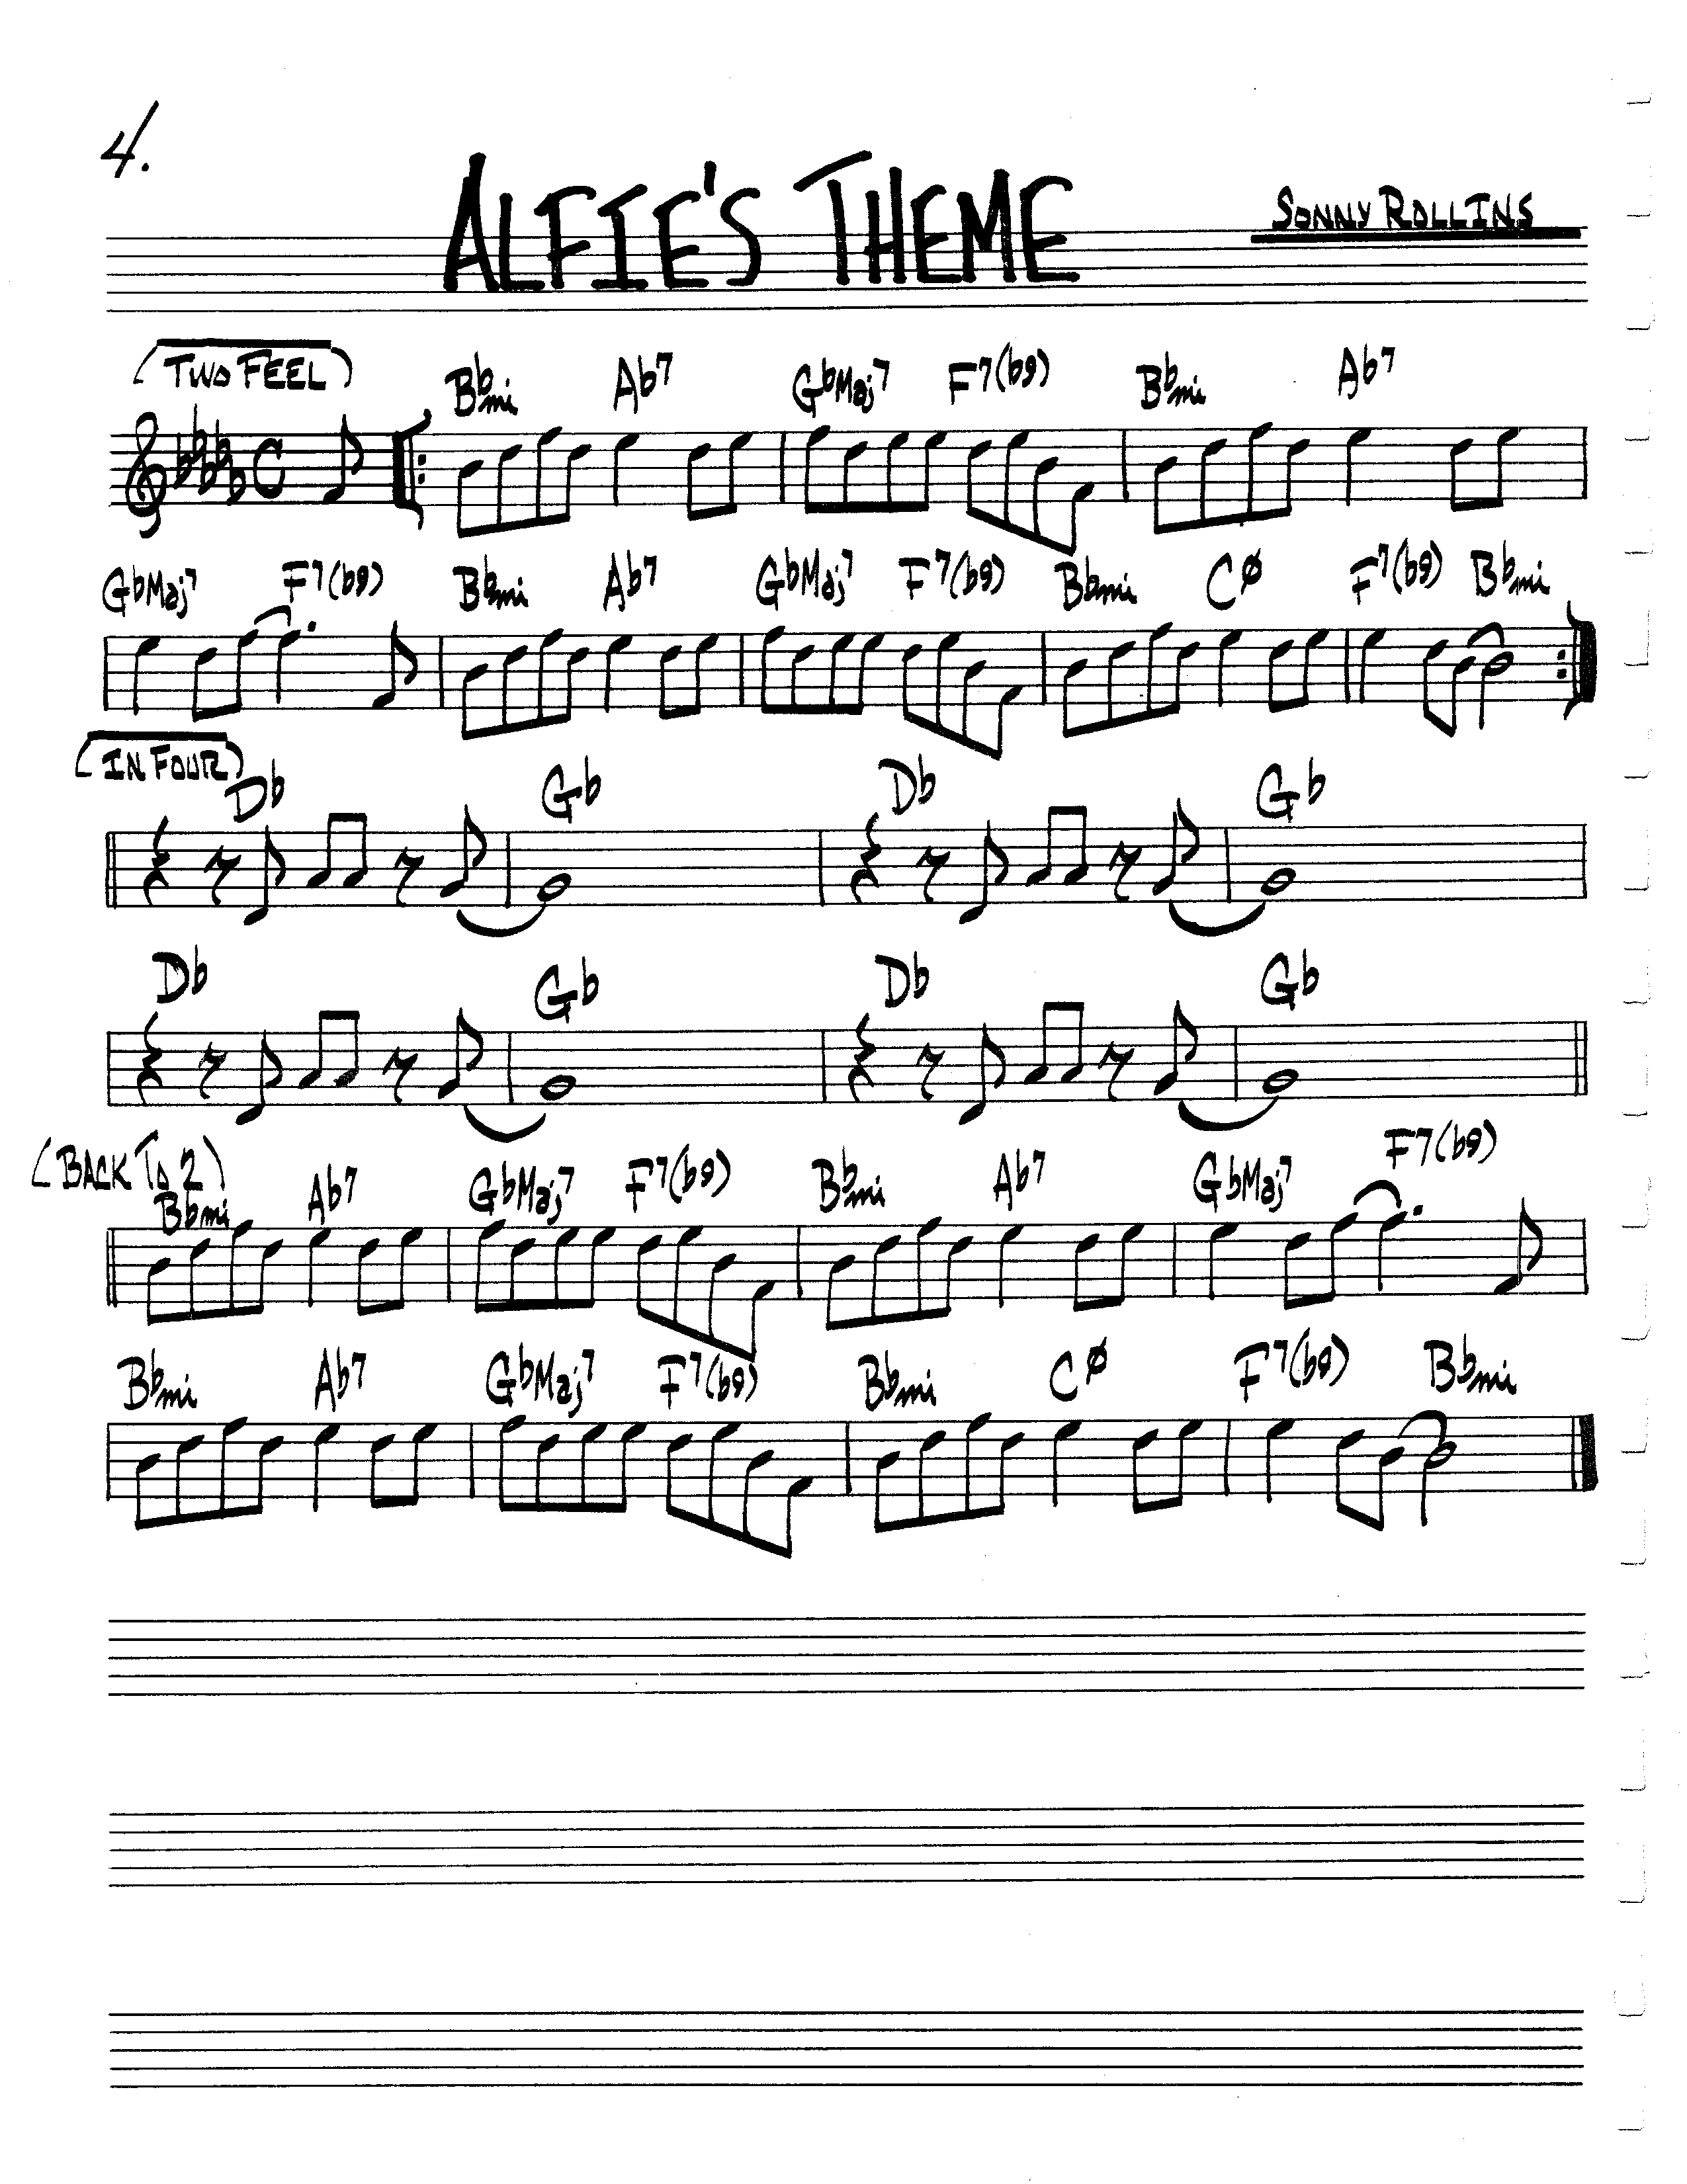 4.
ALFIE'S THEME
SONNY ROLLINS
(TWO FEEL)
Bbmi Ab7 GbMaj7 F7(b9) Bbmi Ab7
GbMaj7 F7(b9) Bbmi Ab7 GbMaj7 F7(b9) Bbmi CØ F7(b9) Bbmi
(IN FOUR)
Db Gb Db Gb
Db Gb Db Gb
(BACK TO 2)
Bbmi Ab7 GbMaj7 F7(b9) Bbmi Ab7 GbMaj7 F7(b9)
Bbmi Ab7 GbMaj7 F7(b9) Bbmi CØ F7(b9) Bbmi